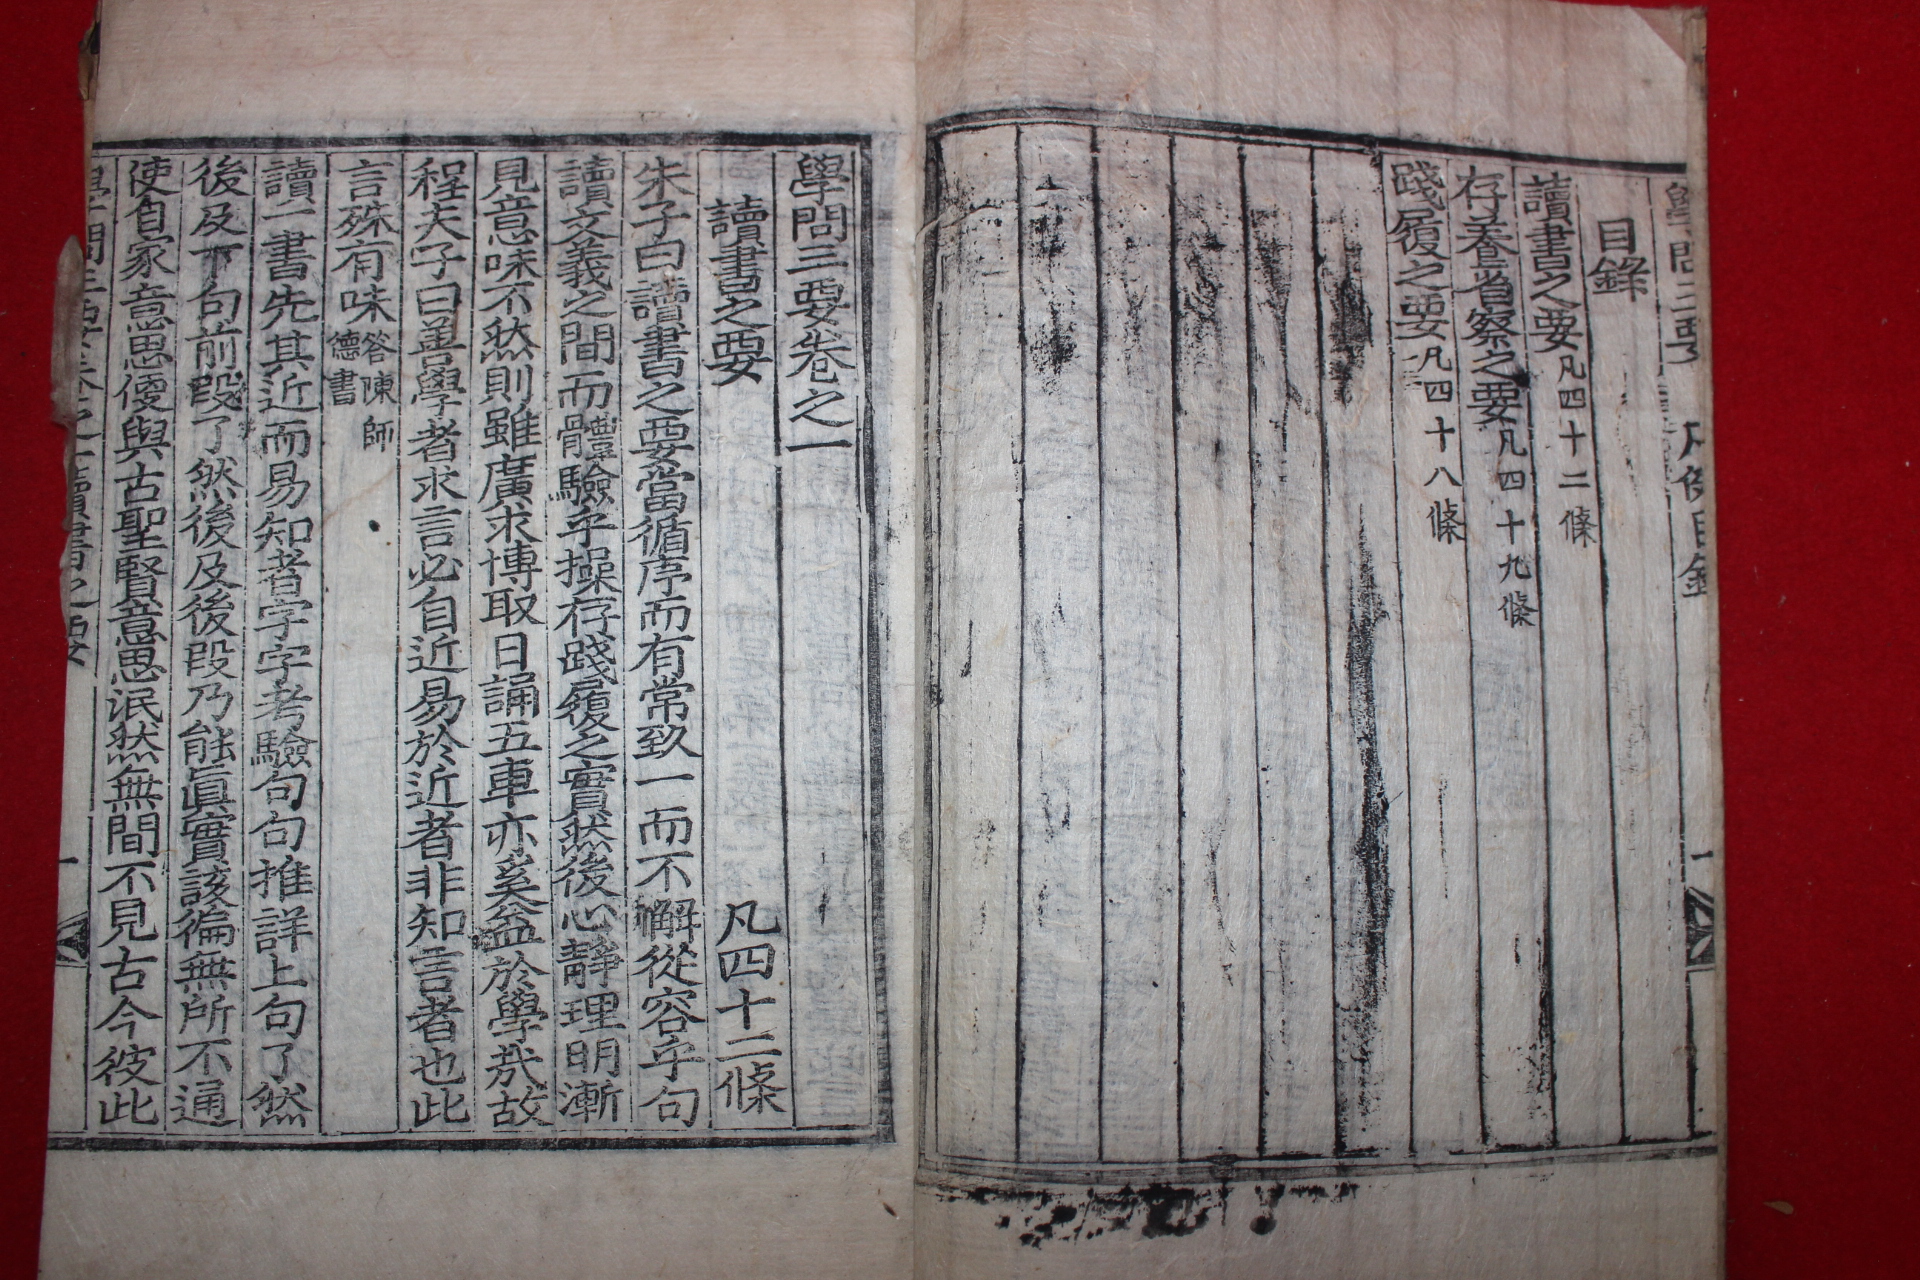 學問三要
凡例目錄
一
目錄
讀書之要凡四十二條
存養省察之要凡四十九條
踐履之要凡四十八條
學問三要卷之一
讀書之要 凡四十二條
朱子曰讀書之要當循序而有常致一而不懈從容乎句
讀文義之間而體驗乎操存踐履之實然後心靜理明漸
見意味不然則雖廣求博取日誦五車亦奚益於學哉故
程夫子曰善學者求言必自近易於近者非知言者也此
言殊有味答陳師
德書
讀一書先其近而易知者字字考驗句句推詳上句了然
後及下句前段了然後及後段乃能眞實該徧無所不通
使自家意思便與古聖賢意思泯然無間不見古今彼此
學問三要卷之一讀書之要
一